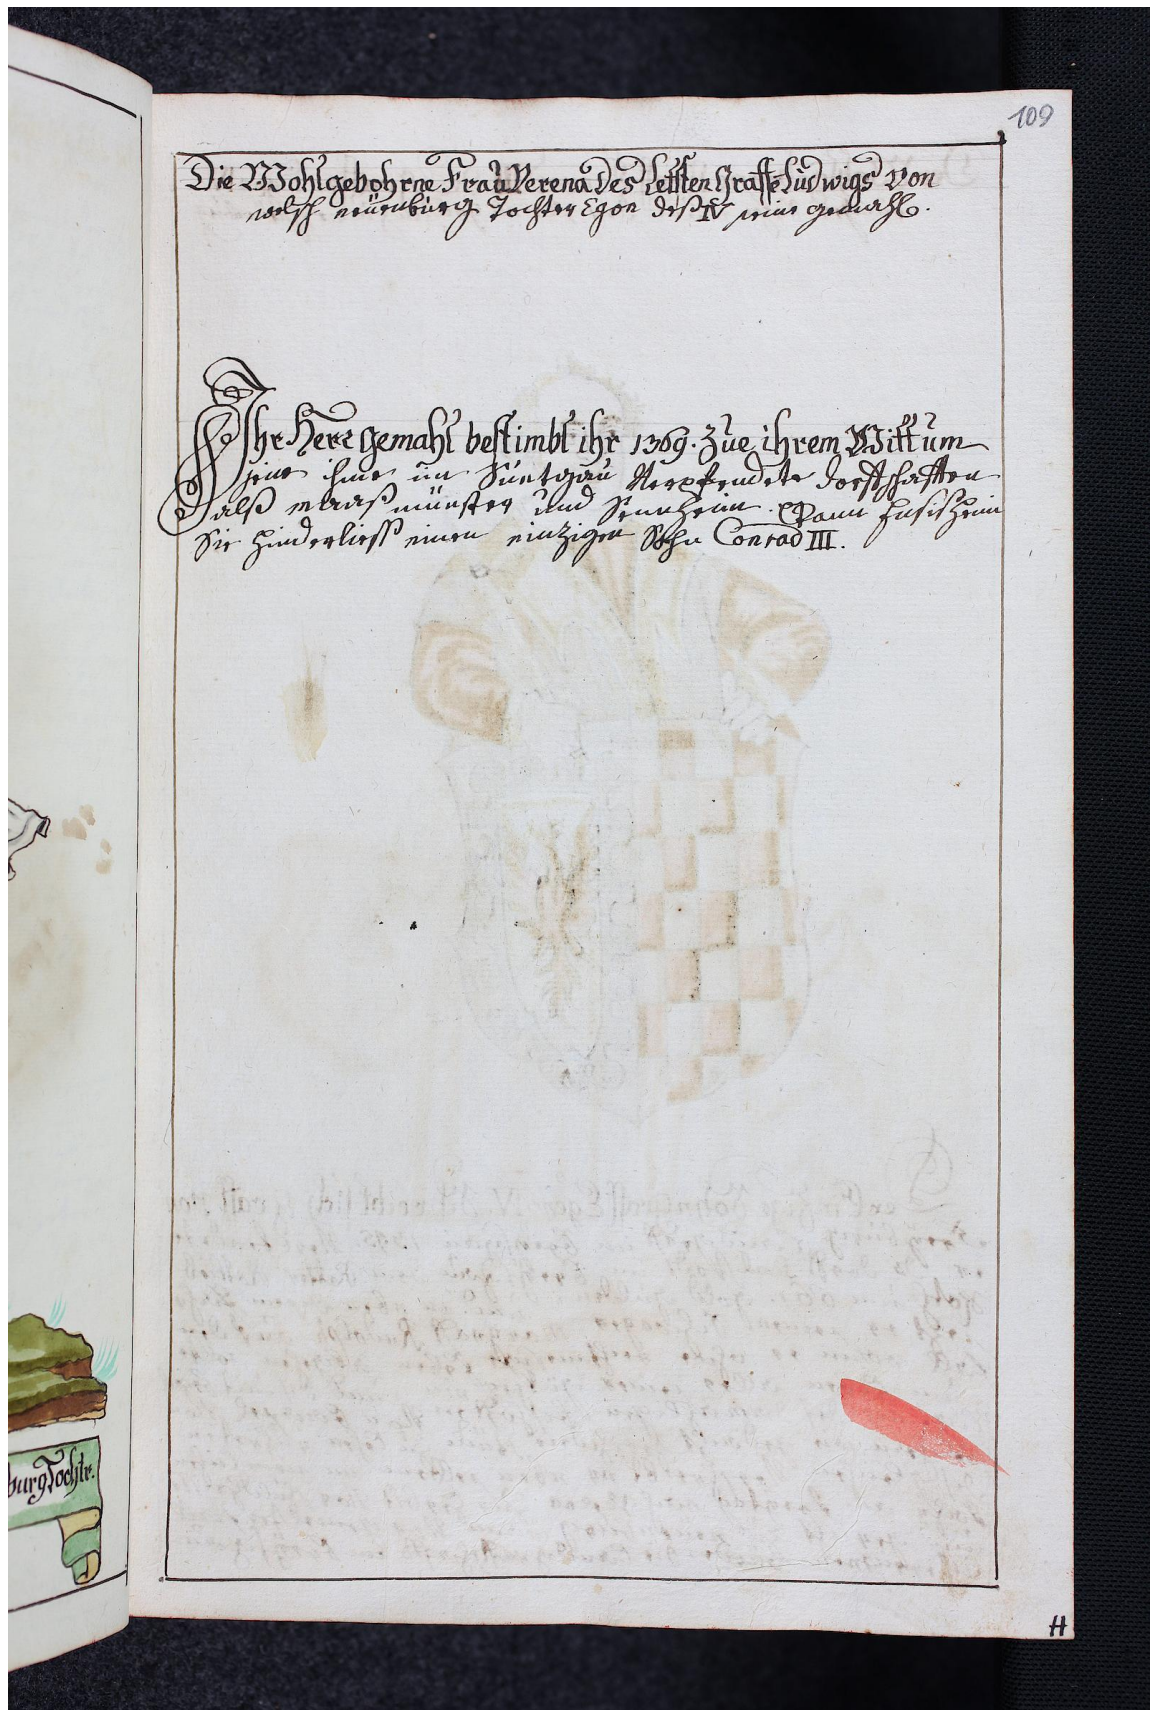 109
Die Wohlgebohrne Frau Verena des letsten Graffe Ludwigs von
welsch neüenbürg Tochter Egon deß IV seine gemahl.
Ihr Herr gemahl bestimbt ihr 1369. zue ihrem Wittum
seine ihme im Suntgau Verpfendete dorffschafften
alß maaß münster und Sennheim. Dann Ensisheim
Sie hinderliess einen einzigen Sohn Conrad III.
burg Tochtr.
H